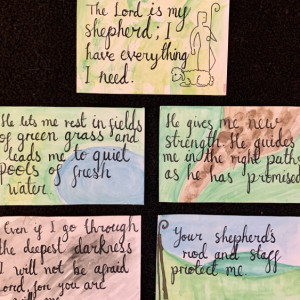 The Lord is my
shepherd; I
have everything
I need.
He lets me rest in fields
of green grass and
leads me to quiet
pools of fresh
water
He gives me new
strength. He guides
me in the right paths
as he has promised.
Even if I go through
the deepest darkness
I will not be afraid
Lord, for you are
with me
Your shepherd's
rod and staff
protect me.